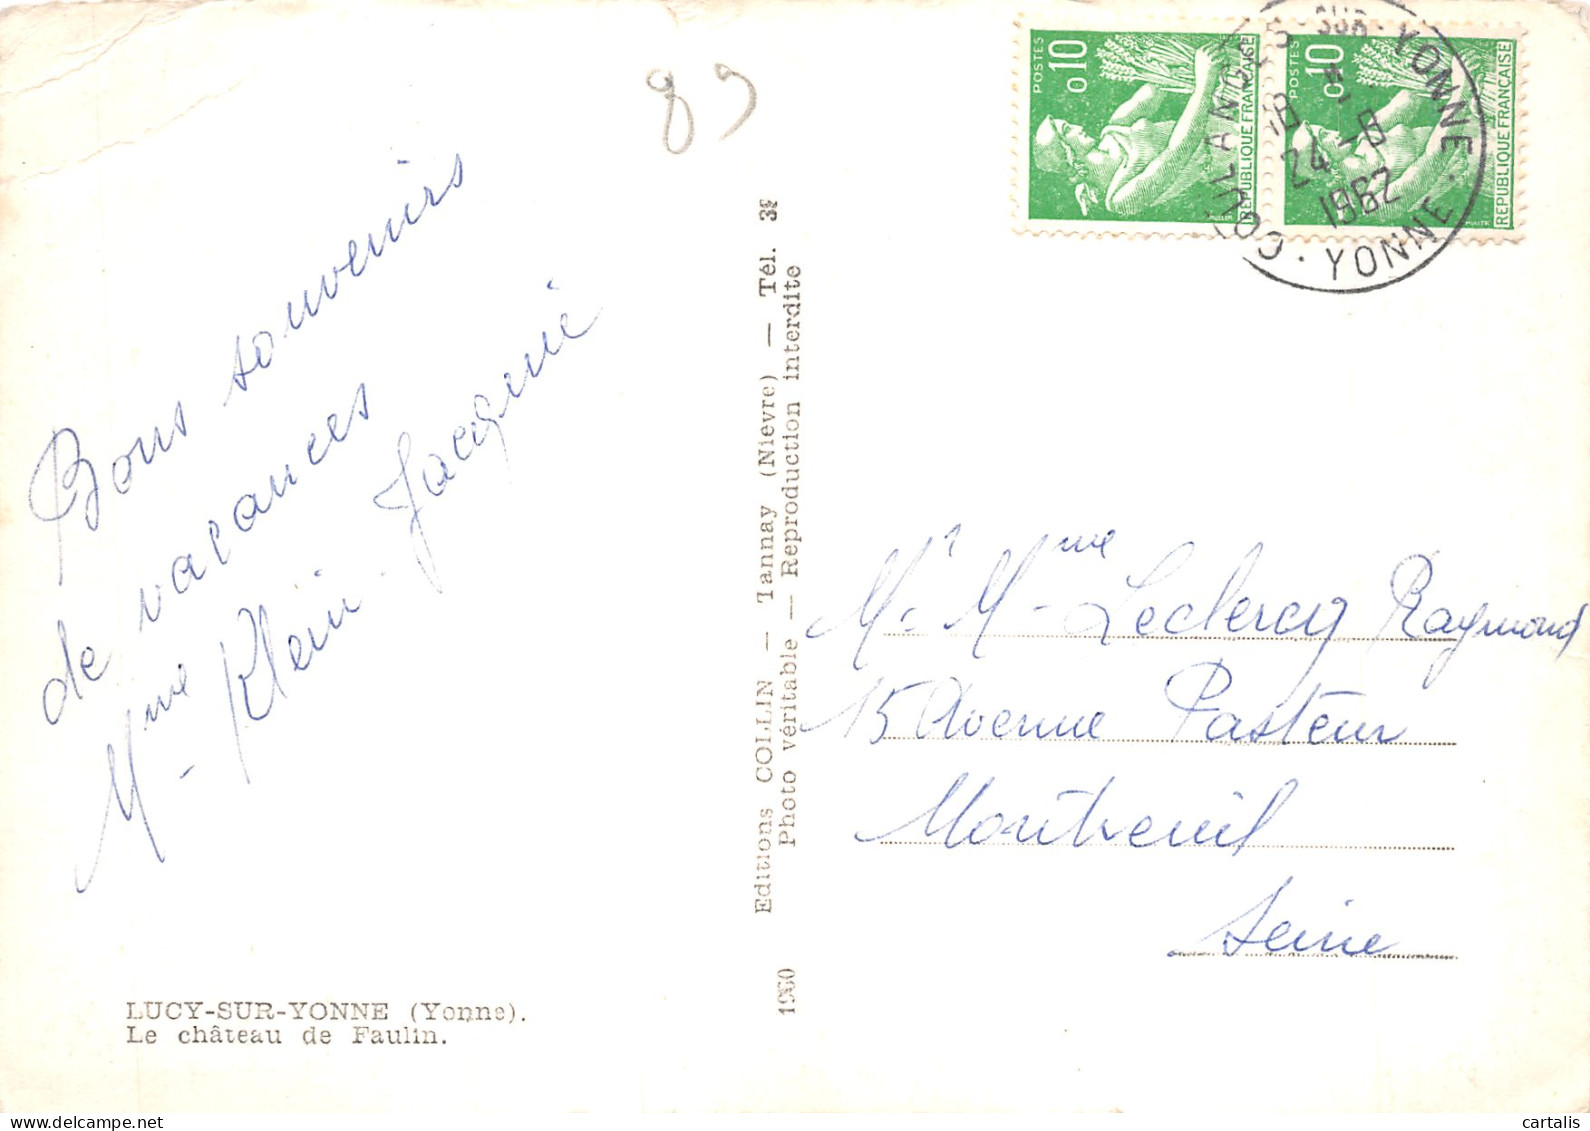 89
Bons souvenirs
de vacances
Mme Klein. Jacquie
LUCY-SUR-YONNE (Yonne).
Le château de Faulin.
Editions COLLIN — Tannay (Nievre) — Tél. 32
Photo véritable — Reproduction interdite
1960
POSTES
0,10
REPUBLIQUE FRANÇAISE
MULLER
POSTES
0,10
REPUBLIQUE FRANÇAISE
MULLER
COULANGES-SUR-YONNE · YONNE ·
18
24-8
1962
Mr Mme Leclercq Raymond
15 Avenue Pasteur
Montreuil
Seine
cartalis
delcampe.net